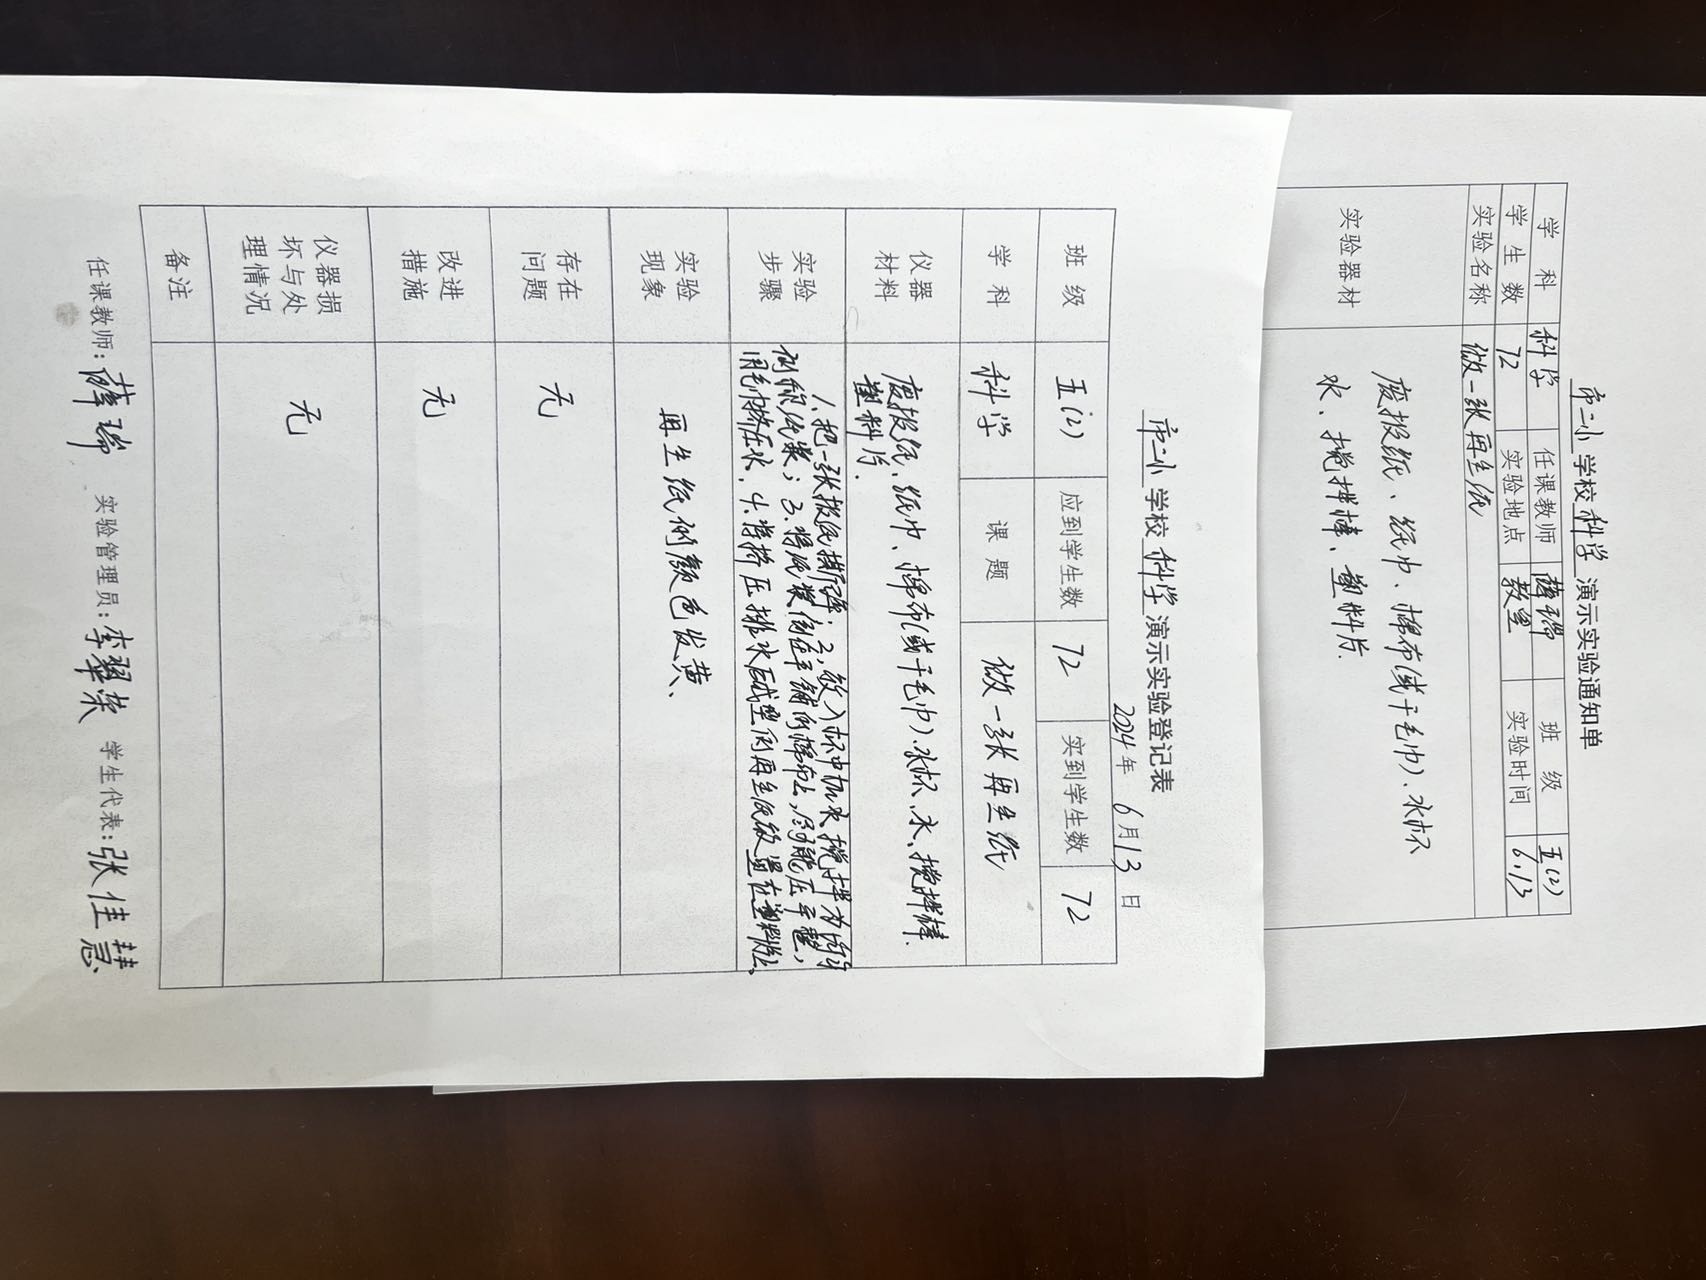 市二小学校科学演示实验通知单
学科 科学 任课教师 薛瑞 班级 五(2)
学生数 72 实验地点 教室 实验时间 6.13
实验名称 做一张再生纸
实验器材 废报纸、纸巾、棉布(或干毛巾)、水杯
水、搅拌棒、塑料片.
市二小学校科学演示实验登记表
2024年6月13日
班级 五(2) 应到学生数 72 实到学生数 72
学科 科学 课题 做一张再生纸
仪器材料 废报纸、纸巾、棉布(或干毛巾)、水杯、水、搅拌棒.
塑料片.
实验步骤 1.把一张报纸撕碎;2,放入杯中加水搅拌为均匀
的纸浆;3.将纸浆倒在平铺的棉布上,尽可能压平整,
用毛巾挤压水.4.将挤压排水后成型的再生纸放置在塑料片上.
实验现象 再生纸的颜色发黄、
存在问题 无
改进措施 无
仪器损坏与处理情况 无
备注
任课教师:薛瑞 实验管理员:李翠荣 学生代表:张佳慧